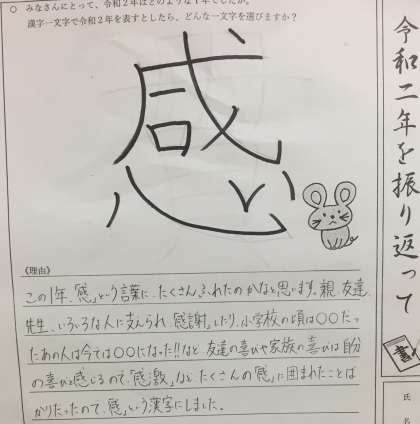 ○ みなさんにとって、令和2年はどのような1年でしたか。
漢字一文字で令和2年を表すとしたら、どんな一文字を選びますか？
感
《理由》
この1年、「感」という言葉に、たくさんふれたのかなと思います。親、友達、
先生、いろいろな人に支えられ、「感謝」したり、小学校の頃は〇〇だっ
たあの人は今では〇〇になった!!など 友達の喜びや家族の喜びは自分
の喜びと感じるので、「感激」など たくさんの「感」に囲まれたことば
かりだったので、「感」という漢字にしました。
令和二年を振り返って
書
氏
名